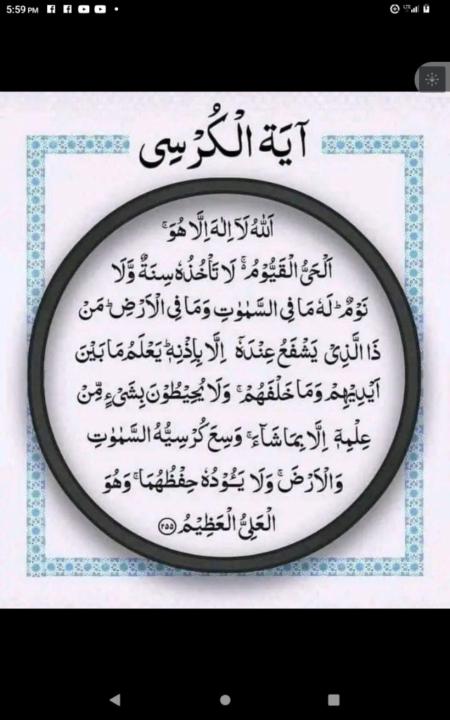 5:59 PM
LTE
آيَة الْكُرْسِى
اَللّٰهُ لَاۤ اِلٰهَ اِلَّا هُوَۚ
اَلْحَىُّ الْقَيُّوْمُ ۚ لَا تَاْخُذُهٗ سِنَةٌ وَّلَا
نَوْمٌ ؕ لَهٗ مَا فِى السَّمٰوٰتِ وَمَا فِى الْاَرْضِ ؕ مَنْ
ذَا الَّذِىْ يَشْفَعُ عِنْدَهٗۤ اِلَّا بِاِذْنِهٖ ؕ يَعْلَمُ مَا بَيْنَ
اَيْدِيْهِمْ وَمَا خَلْفَهُمْ ۚ وَلَا يُحِيْطُوْنَ بِشَىْءٍ مِّنْ
عِلْمِهٖۤ اِلَّا بِمَا شَآءَ ۚ وَسِعَ كُرْسِيُّهُ السَّمٰوٰتِ
وَالْاَرْضَ ۚ وَلَا يَــُٔوْدُهٗ حِفْظُهُمَا ۚ وَهُوَ
الْعَلِىُّ الْعَظِيْمُ ﴿۲۵۵﴾